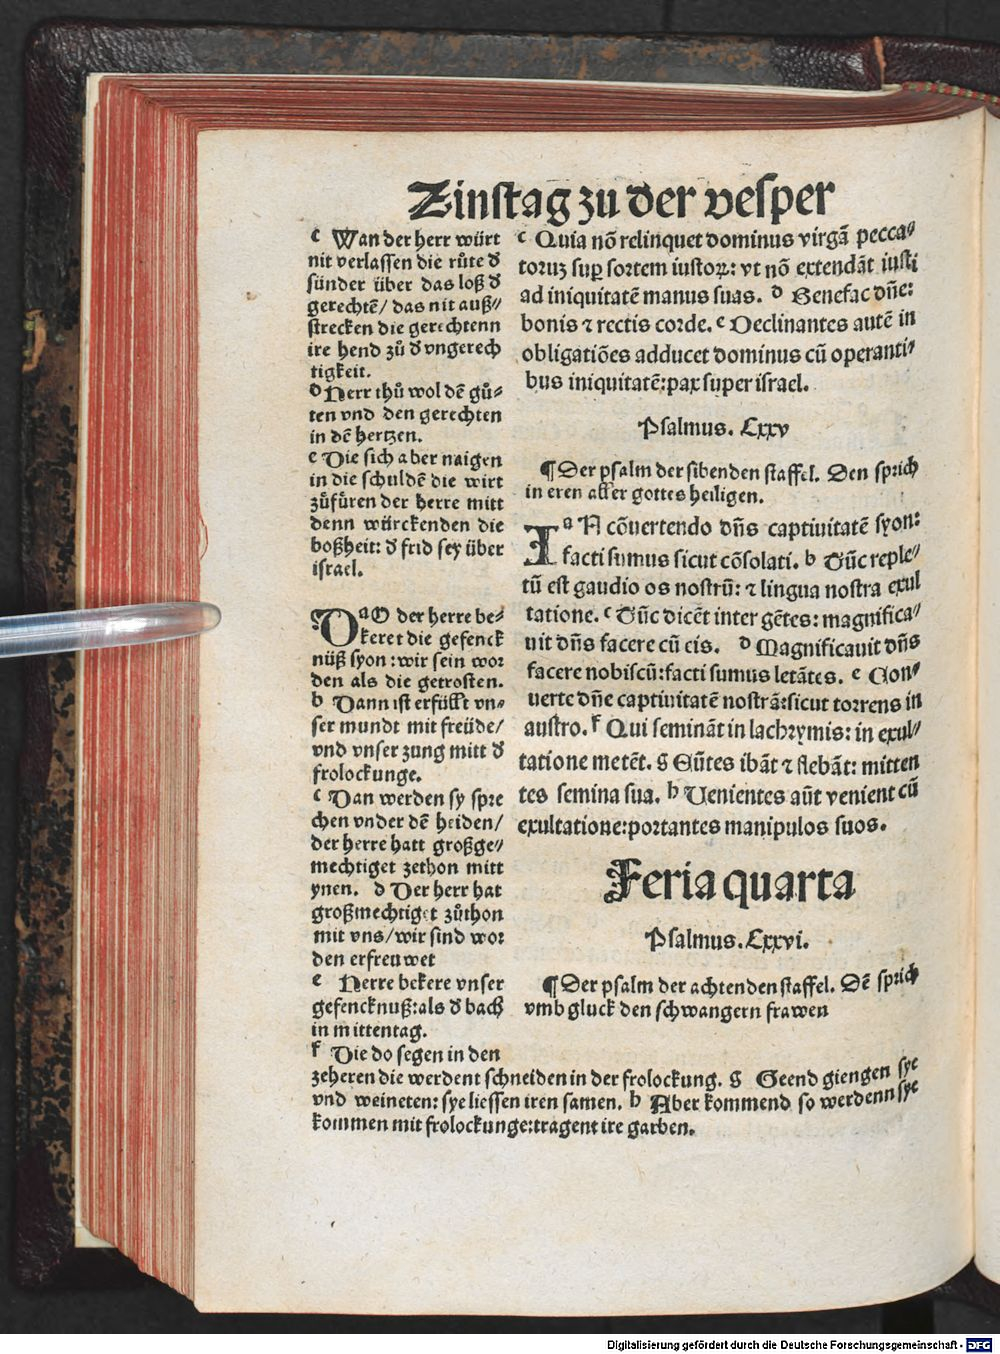 Zinstag zu der vesper
c Wan der herr würt
nit verlassen die růte d̕
sünder über das loß d̕
gerechtē/ das nit auß⸗
strecken die gerechtenn
ire hend zů d̕ vngerech
tigkeit.
d Herr thů wol dē gů⸗
ten vnd den gerechten
in dē hertzen.
e Die sich aber naigen
in die schuldē die wirt
zůfüren der herre mitt
denn würckenden die
boßheit: d̕ frid sey über
israel.
a DO der herre be⸗
keret die gefenck
nüß syon: wir sein wor
den als die getrosten.
b Dann ist erfüllt vn⸗
ser mundt mit freüde/
vnd vnser zung mitt d̕
frolockunge.
c Dan werden sy spre
chen vnder dē heiden/
der herre hatt großge⸗
mechtiget zethon mitt
ynen. d Der herr hat
großmechtiget zůthon
mit vns/ wir sind wor
den erfreuwet
e Herre bekere vnser
gefencknuß: als d̕ bach
in mittentag.
f Die do segen in den
zeheren die werdent schneiden in der frolockung. g Geend giengen sye
vnd weineten: sye liessen iren samen. h Aber kommend so werdenn sye
kommen mit frolockunge: tragent ire garben.
c Quia nō relinquet dominus virgā pecca⸗
toruz sup̱ sortem iustoꝝ: vt nō extendāt iusti
ad iniquitatē manus suas. d Benefac dn̄e:
bonis ⁊ rectis corde. e Declinantes autē in
obligatiōes adducet dominus cū operanti⸗
bus iniquitatē: pax super israel.
Psalmus. Cxxv
¶ Der psalm der sibenden staffel. Den sprich
in eren aller gottes heiligen.
a IN cōuertendo dn̄s captiuitatē syon:
facti sumus sicut cōsolati. b Tūc reple⸗
tū est gaudio os nostrū: ⁊ lingua nostra exul
tatione. c Tūc dicēt inter gētes: magnifica⸗
uit dn̄s facere cū eis. d Magnificauit dn̄s
facere nobiscū: facti sumus letātes. e Con⸗
uerte dn̄e captiuitatē nostrā: sicut torrens in
austro. f Qui semināt in lachrymis: in exul⸗
tatione metēt. g Eūtes ibāt ⁊ flebāt: mitten
tes semina sua. h Uenientes aūt venient cū
exultatione: portantes manipulos suos.
Feria quarta
Psalmus. Cxxvi.
¶ Der psalm der achtenden staffel. Dē sprich
vmb gluck den schwangern frawen
Digitalisierung gefördert durch die Deutsche Forschungsgemeinschaft - DFG